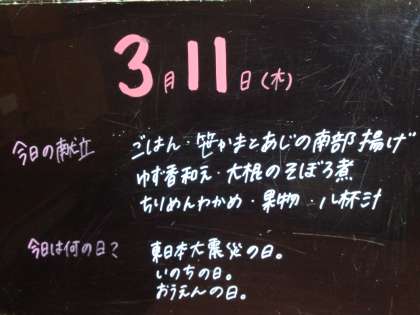 3月11日(木)
今日の献立 ごはん・笹かまとあじの南部揚げ
ゆず香和え・大根のそぼろ煮
ちりめんわかめ・果物・八杯汁
今日は何の日? 東日本大震災の日。
いのちの日。
おうえんの日。